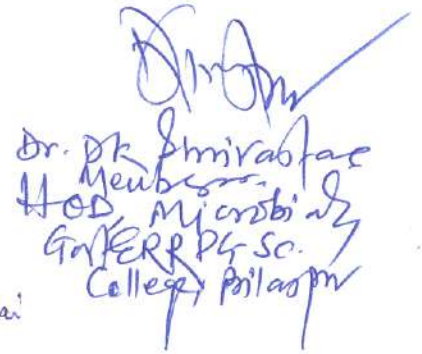 Dr. DK Shrivastava
Member
HOD, Microbiology
Govt ERR PG Sc.
College, Bilaspur
ai